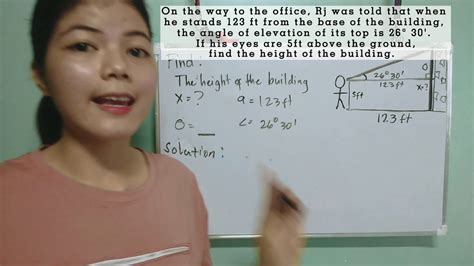 On the way to the office, Rj was told that when
he stands 123 ft from the base of the building,
the angle of elevation of its top is 26° 30'.
If his eyes are 5ft above the ground,
find the height of the building.
find:
The height of the building
x = ?
a = 123 ft
O = __
∠ = 26° 30'
Solution:
26° 30'
123 ft
x = ?
5ft
123 ft